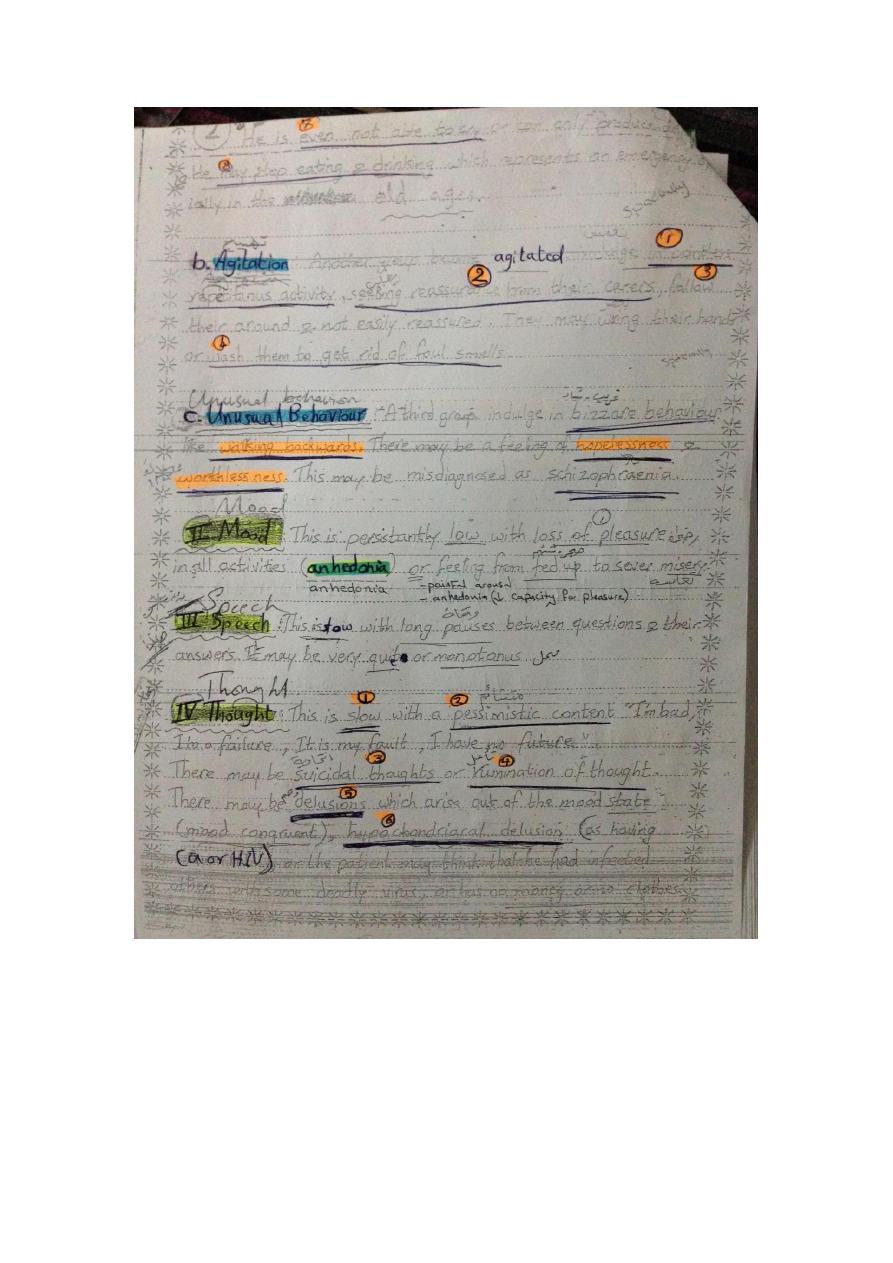 He is even not able to cry or can only produce
He may stop eating & drinking which represents an emergency
ially in the old ages.
Specially
b. Agitation : Another group became agitated indulge in pointless
repetanus activity, seeking reassurance from their carers, follow
their around & not easily reassured. They may wring their hands
or wash them to get rid of foul smells.
Unusual behavior
c. Unusual Behaviour :- A third group indulge in bizzare behaviour
like walking backwards. There may be a feeling of hopelessness &
worthlessness. This may be misdiagnosed as schizophraenia.
Mood
II Mood : This is persistantly low with loss of pleasure
in all activities (anhedonia) or feeling from fed up to sever misery.
anhedonia
- anhedonia (↓ capacity for pleasure)
Speech
III Speech : This is slow with long pauses between questions & their
answers. It may be very quite or monotanus
Thought
IV Thought : This is slow with a pessimistic content "I'm bad,
I'm a failure, It is my fault, I have no future".
There may be suicidal thoughts or rumination of thought.
There may be delusions which arise out of the mood state
(mood congruent), hypochondriacal delusion (as having
Ca or HIV) or the patient may think that he had infected
others with some deadly virus, or has no money or no clothes.